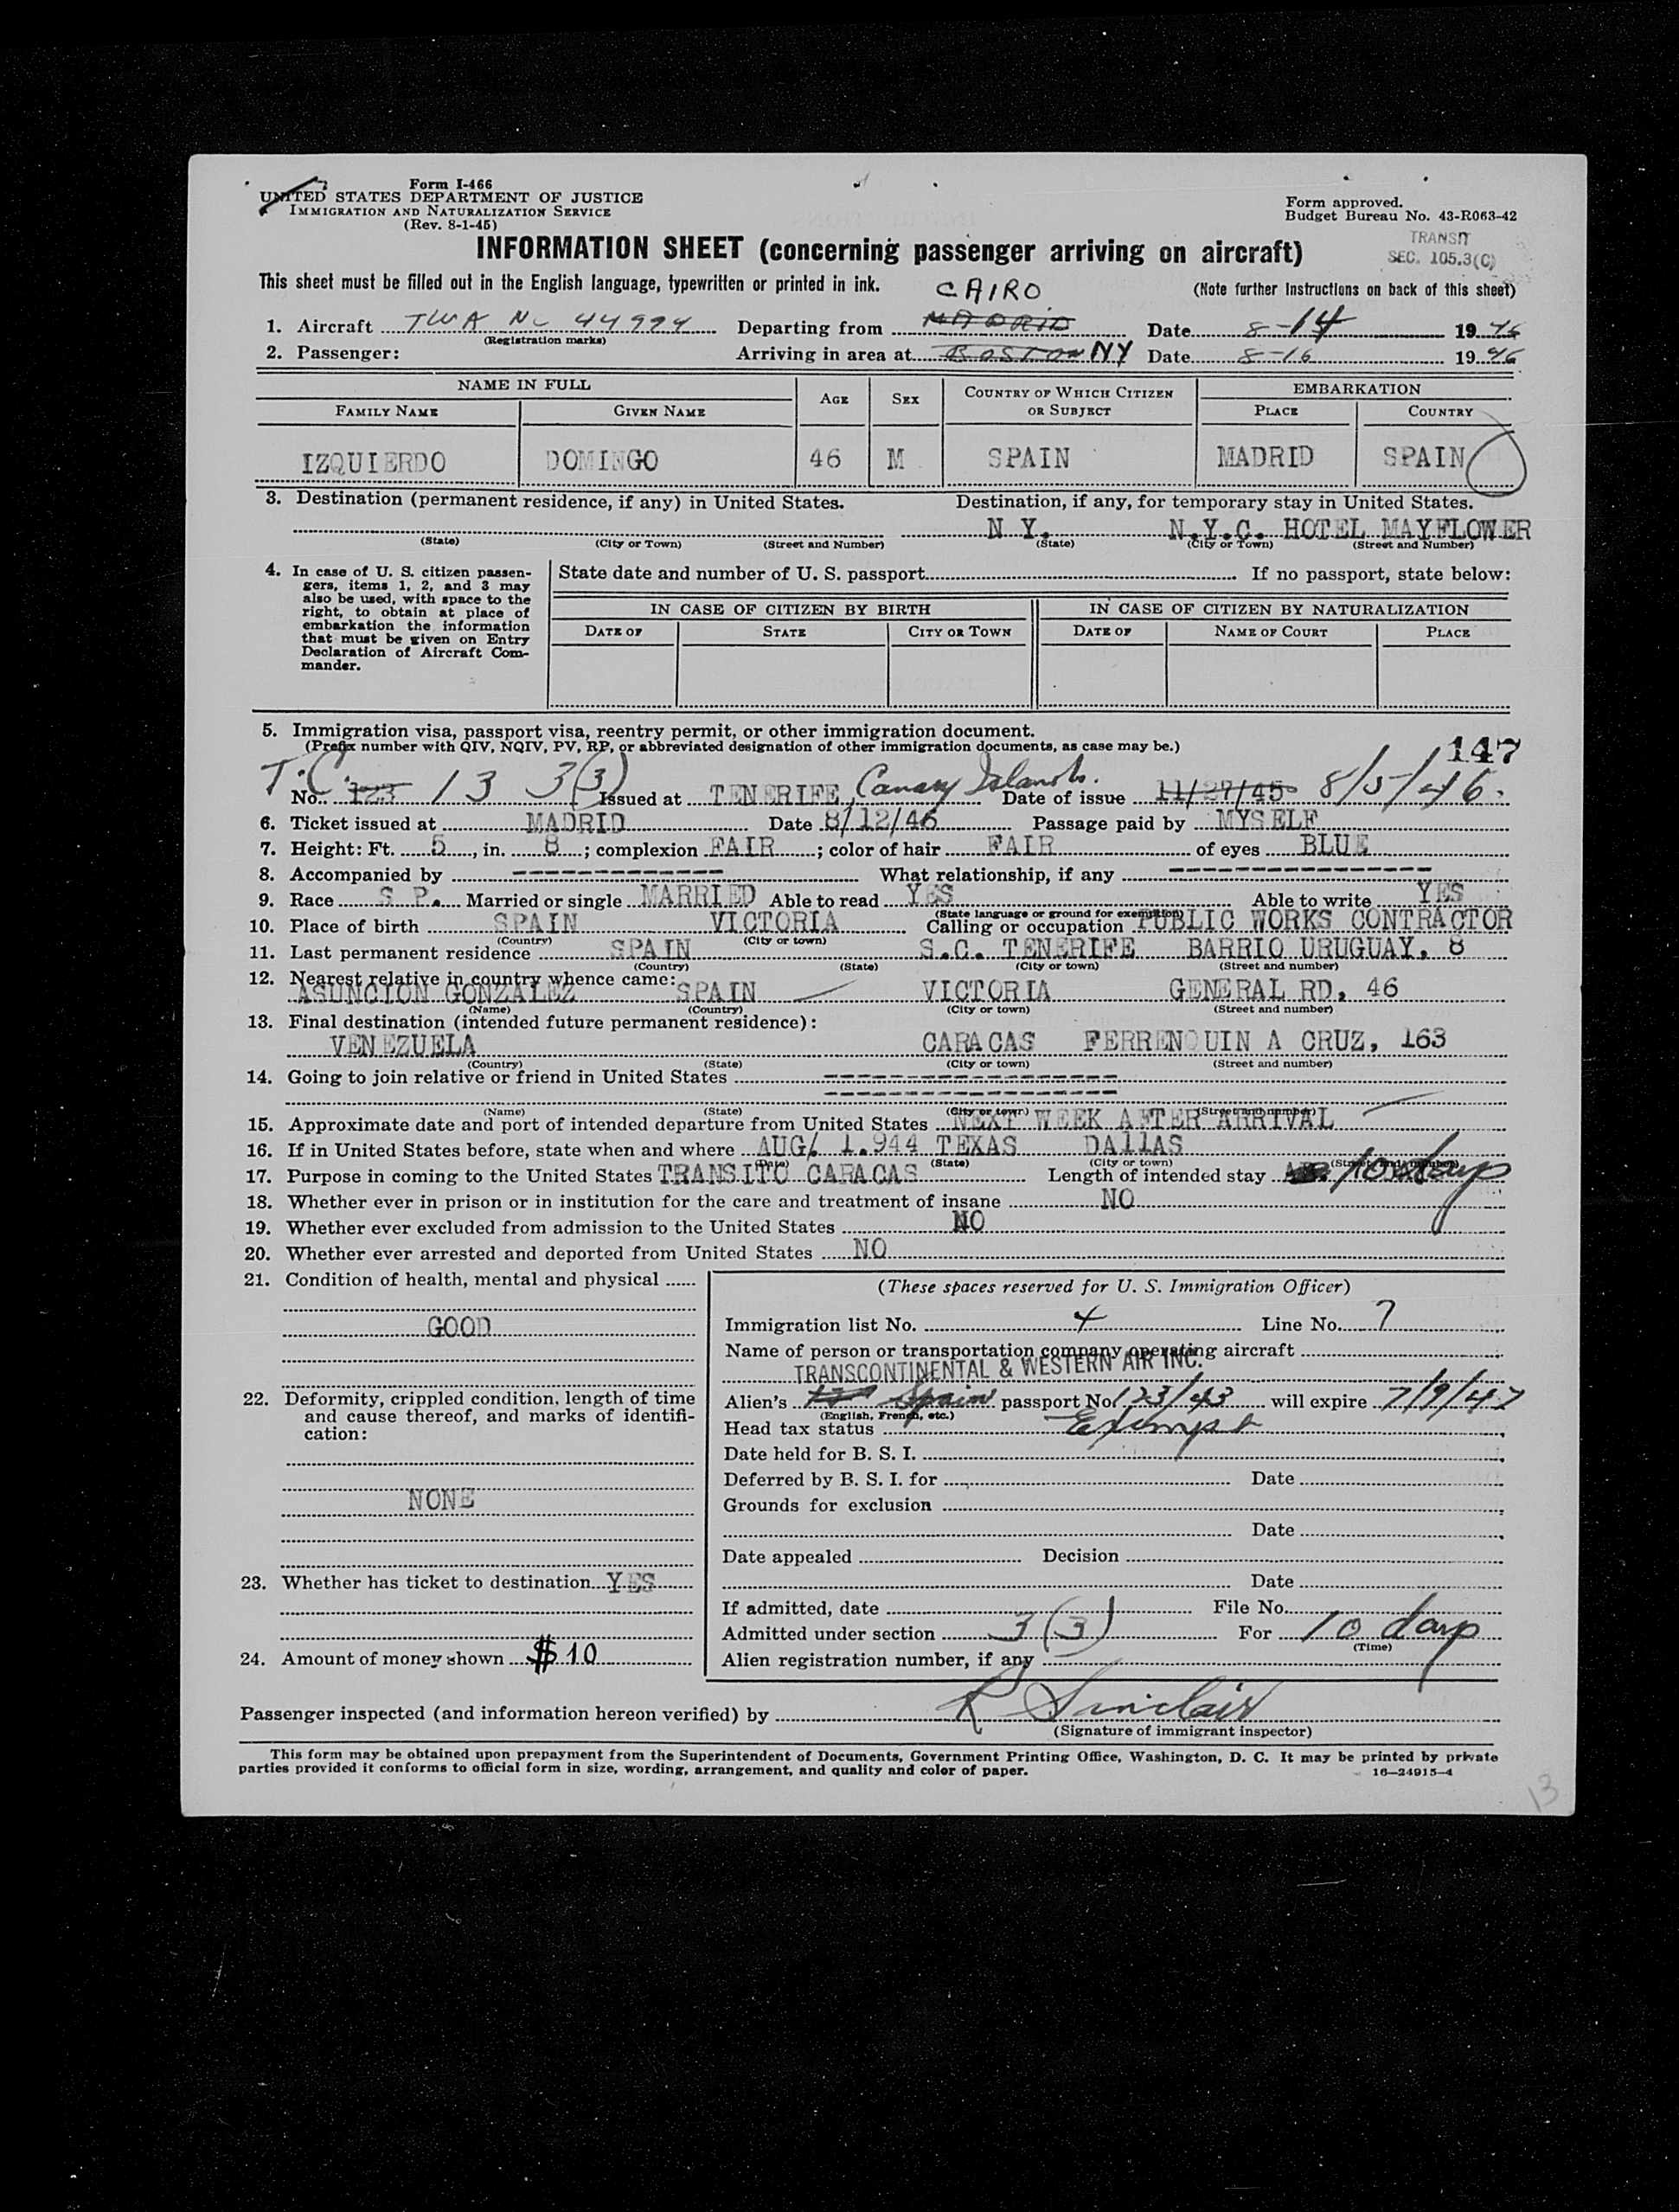 Form I-466
UNITED STATES DEPARTMENT OF JUSTICE
IMMIGRATION AND NATURALIZATION SERVICE
(Rev. 8-1-45)
Form approved.
Budget Bureau No. 43-R063-42
INFORMATION SHEET (concerning passenger arriving on aircraft)
TRANSIT
SEC. 105.3(C)
This sheet must be filled out in the English language, typewritten or printed in ink.
(Note further instructions on back of this sheet)
CAIRO
1. Aircraft TWA NC 44994 Departing from MADRID Date 8-14 1946
(Registration marks)
2. Passenger: Arriving in area at BOSTON NY Date 8-16 1946
NAME IN FULL AGE SEX COUNTRY OF WHICH CITIZEN OR SUBJECT EMBARKATION
FAMILY NAME GIVEN NAME PLACE COUNTRY
IZQUIERDO DOMINGO 46 M SPAIN MADRID SPAIN
3. Destination (permanent residence, if any) in United States. Destination, if any, for temporary stay in United States.
N Y. N.Y.C. HOTEL MAYFLOWER
(State) (City or Town) (Street and Number) (State) (City or Town) (Street and Number)
4. In case of U. S. citizen passengers, items 1, 2, and 3 may also be used, with space to the right, to obtain at place of embarkation the information that must be given on Entry Declaration of Aircraft Commander.
State date and number of U. S. passport If no passport, state below:
IN CASE OF CITIZEN BY BIRTH IN CASE OF CITIZEN BY NATURALIZATION
DATE OF STATE CITY OR TOWN DATE OF NAME OF COURT PLACE
5. Immigration visa, passport visa, reentry permit, or other immigration document.
(Prefix number with QIV, NQIV, PV, RP, or abbreviated designation of other immigration documents, as case may be.)
147
T.C. No. 123 13 3(3) Issued at TENERIFE, Canary Islands. Date of issue 11/27/45 8/5/46.
6. Ticket issued at MADRID Date 8/12/46 Passage paid by MYSELF
7. Height: Ft. 5, in. 8; complexion FAIR; color of hair FAIR of eyes BLUE
8. Accompanied by ------------- What relationship, if any ---------------
9. Race S P. Married or single MARRIED Able to read YES Able to write YES
(State language or ground for exemption)
10. Place of birth SPAIN VICTORIA Calling or occupation PUBLIC WORKS CONTRACTOR
(Country) (City or town)
11. Last permanent residence SPAIN S.C. TENERIFE BARRIO URUGUAY, 8
(Country) (State) (City or town) (Street and number)
12. Nearest relative in country whence came:
ASUNCION GONZALEZ SPAIN VICTORIA GENERAL RD, 46
(Name) (Country) (City or town) (Street and number)
13. Final destination (intended future permanent residence):
VENEZUELA CARACAS FERRENQUIN A CRUZ, 163
(Country) (State) (City or town) (Street and number)
14. Going to join relative or friend in United States ------------------
------------------
(Name) (State) (City or town) (Street and number)
15. Approximate date and port of intended departure from United States NEXT WEEK AFTER ARRIVAL
16. If in United States before, state when and where AUG/. 1.944 TEXAS DAllAS
(Date) (State) (City or town) (Street and number)
17. Purpose in coming to the United States TRANSITO CARACAS Length of intended stay 10 days
18. Whether ever in prison or in institution for the care and treatment of insane NO
19. Whether ever excluded from admission to the United States NO
20. Whether ever arrested and deported from United States NO
21. Condition of health, mental and physical
GOOD
22. Deformity, crippled condition, length of time and cause thereof, and marks of identification:
NONE
23. Whether has ticket to destination YES
24. Amount of money shown $ 10
(These spaces reserved for U. S. Immigration Officer)
Immigration list No. 4 Line No. 7
Name of person or transportation company operating aircraft
TRANSCONTINENTAL & WESTERN AIR INC.
Alien's Spain passport No. 123/43 will expire 7/9/47
(English, French, etc.)
Head tax status Exempt
Date held for B. S. I.
Deferred by B. S. I. for Date
Grounds for exclusion
Date
Date appealed Decision
Date
If admitted, date File No.
Admitted under section 3(3) For 10 days
(Time)
Alien registration number, if any
Passenger inspected (and information hereon verified) by R Sinclair
(Signature of immigrant inspector)
This form may be obtained upon prepayment from the Superintendent of Documents, Government Printing Office, Washington, D. C. It may be printed by private
parties provided it conforms to official form in size, wording, arrangement, and quality and color of paper.
16—24915-4
13